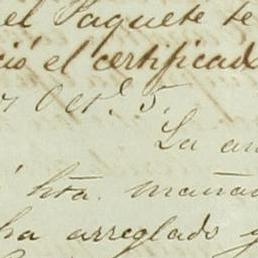 el Paquete te
ció el certificado
Oct.e 5.
La an
hta. mañana
ha arreglado y